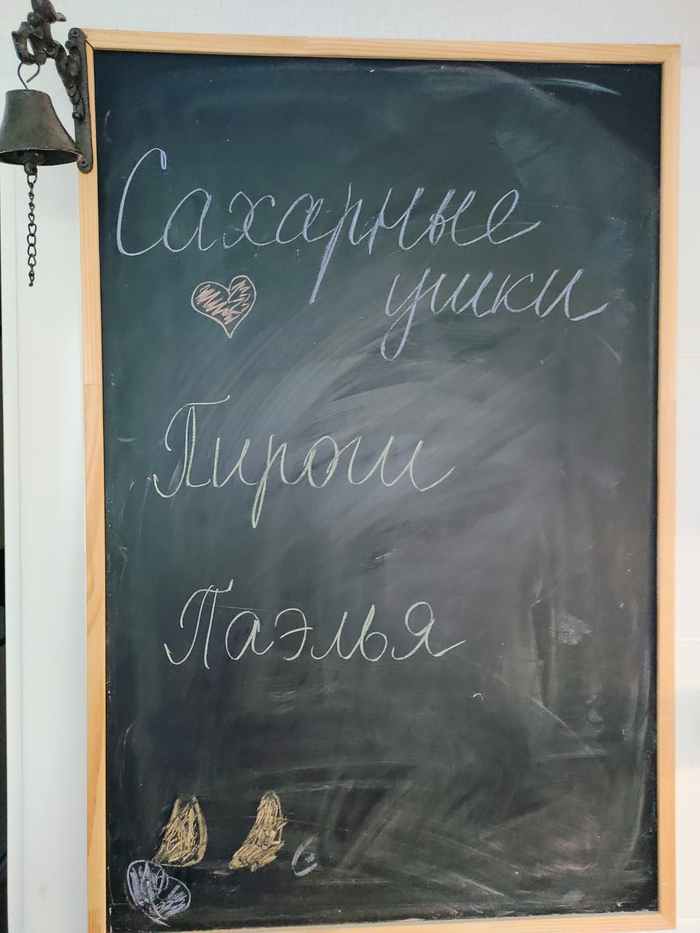 Сахарные
ушки
Пирош
Паэлья